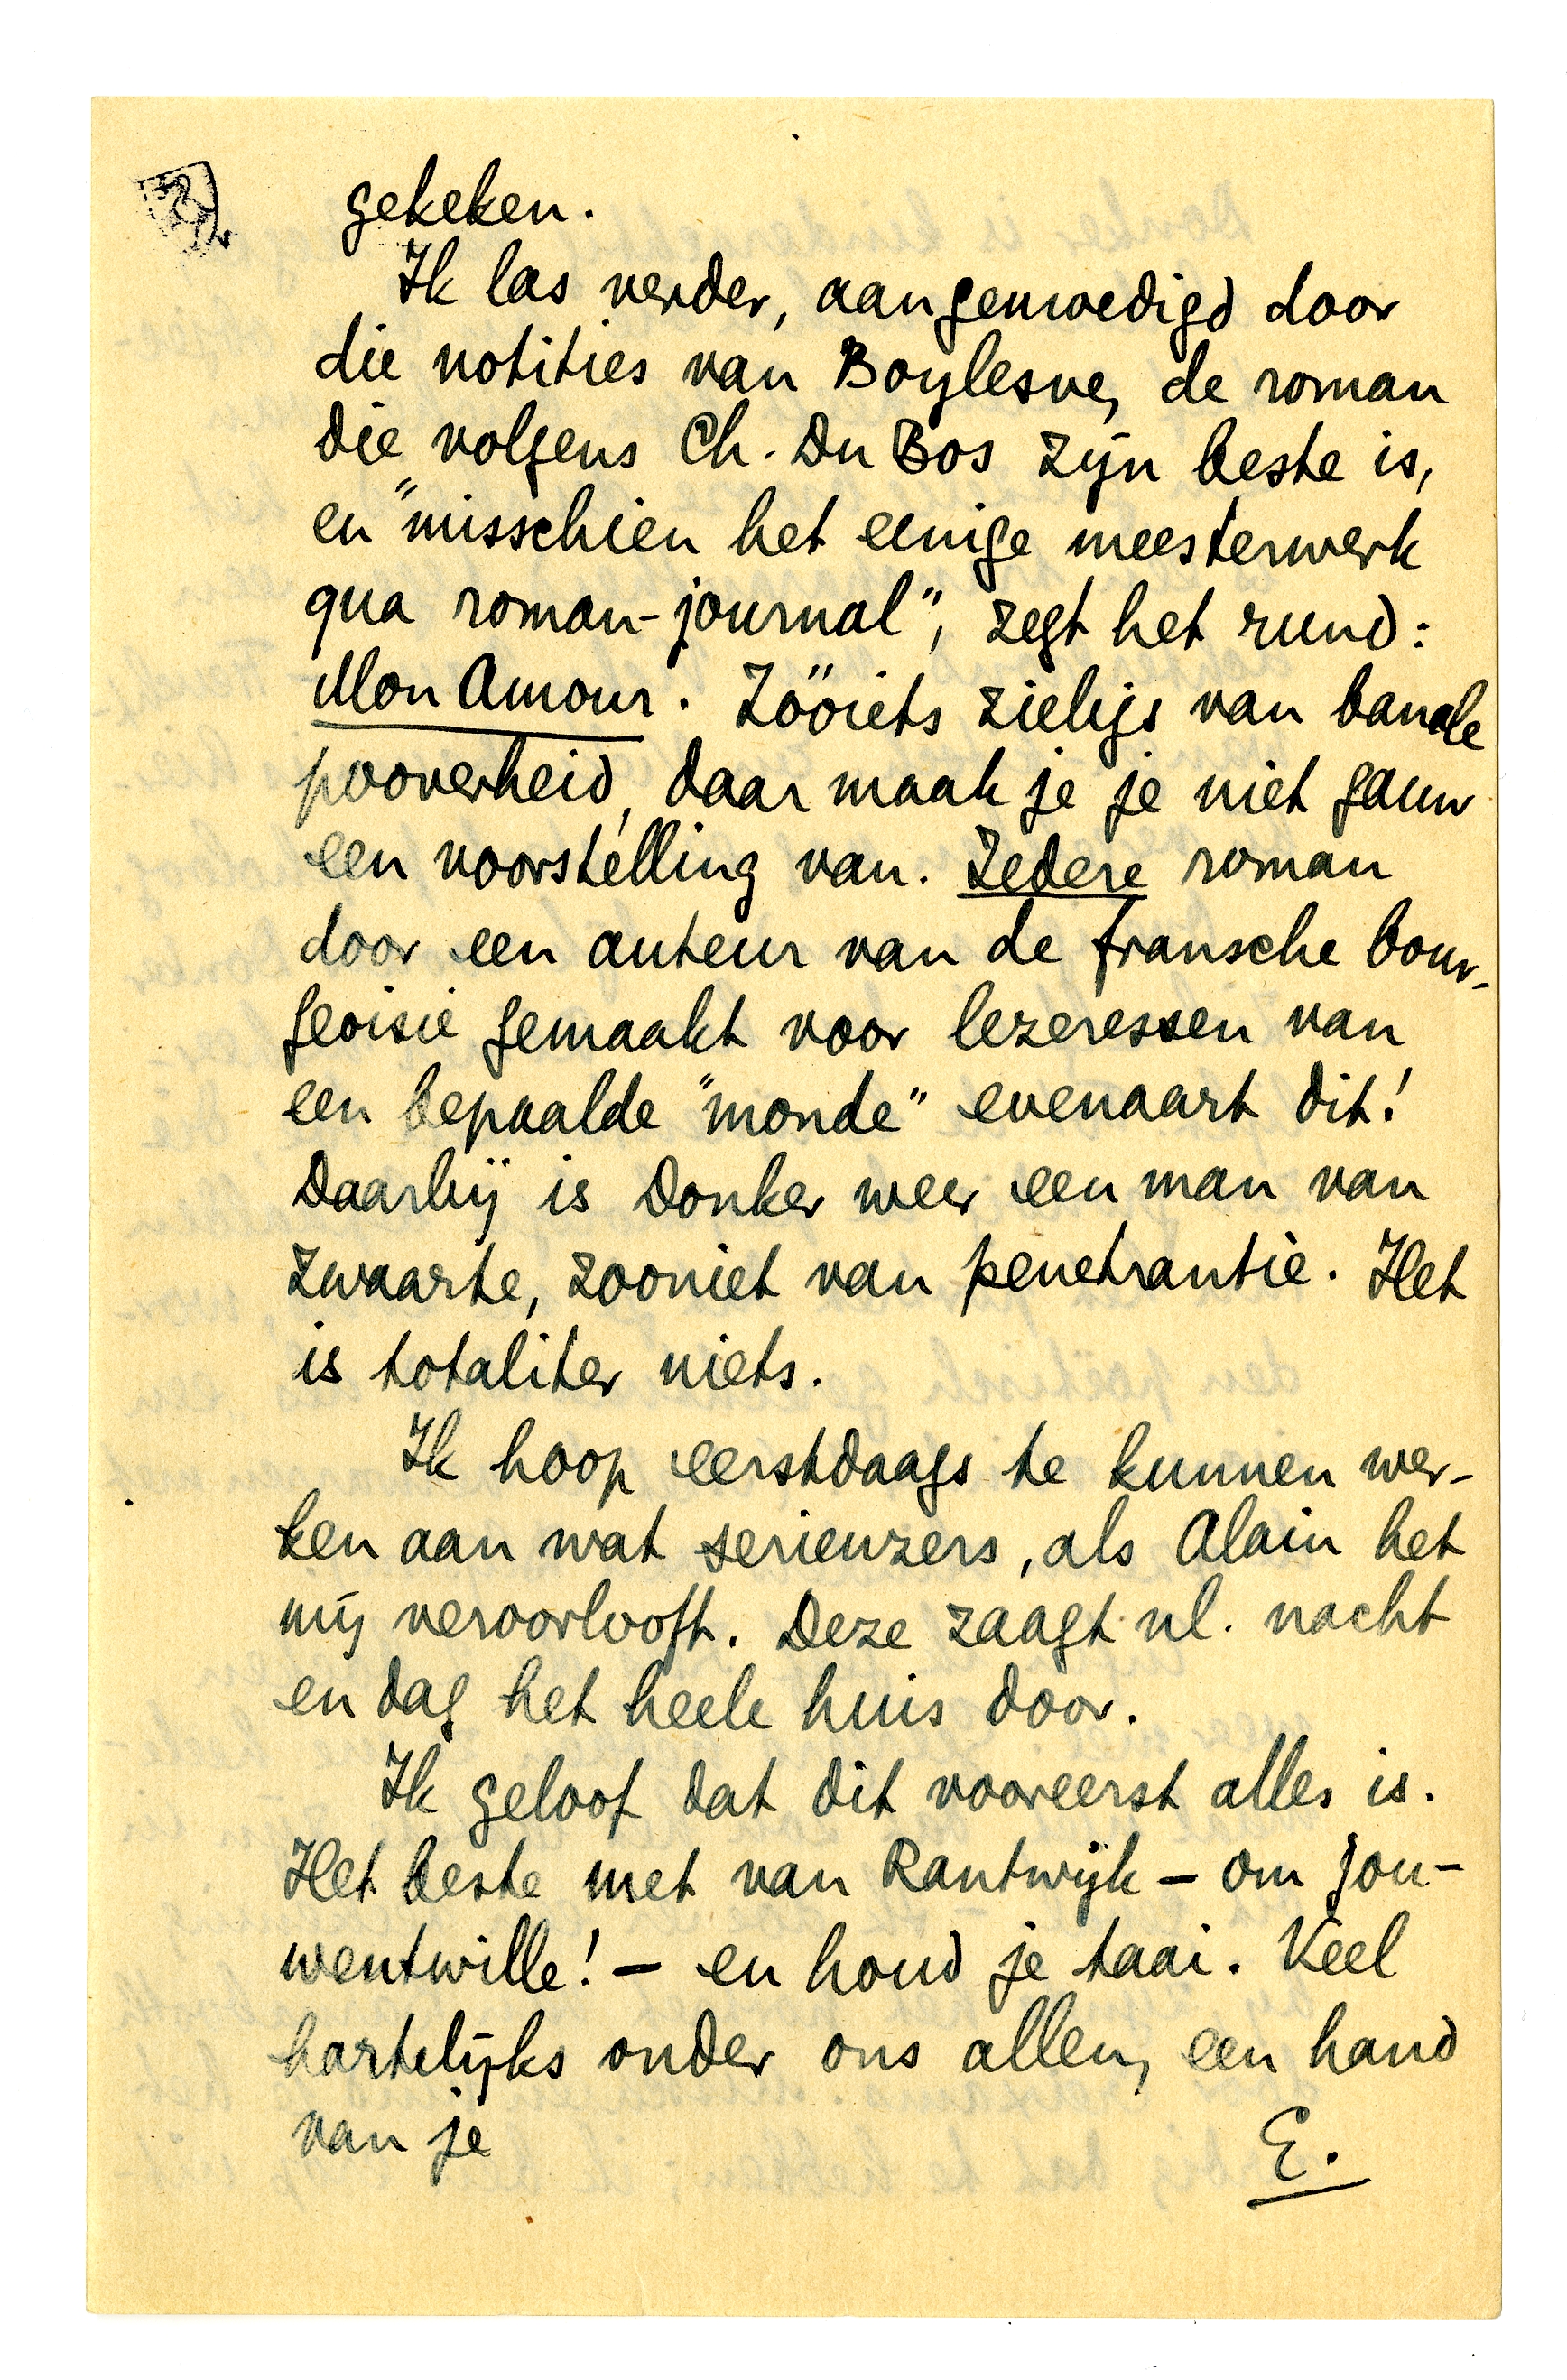 gekeken.
Ik las verder, aangemoedigd door
die notities van Boylesve, de roman
die volgens Ch. Du Bos zijn beste is,
en "misschien het eenige meesterwerk
qua roman-journal", zegt het rund:
Mon Amour. Zóóiets zieligs van banale
pooverheid, daar maak je je niet gauw
een voorstelling van. Iedere roman
door een auteur van de fransche bour-
geoisie gemaakt voor lezeressen van
een bepaalde "monde" evenaart dit!
Daarbij is Donker weer een man van
zwaarte, zooniet van penetrantie. Het
is totaliter niets.
Ik hoop eerstdaags te kunnen wer-
ken aan wat serieuzers, als Alain het
mij veroorlooft. Deze zaagt nl. nacht
en dag het heele huis door.
Ik geloof dat dit vooreerst alles is.
Het beste met van Rantwijk – om jou-
wentwille! – en houd je taai. Veel
hartelijks onder ons allen, een hand
van je
E.